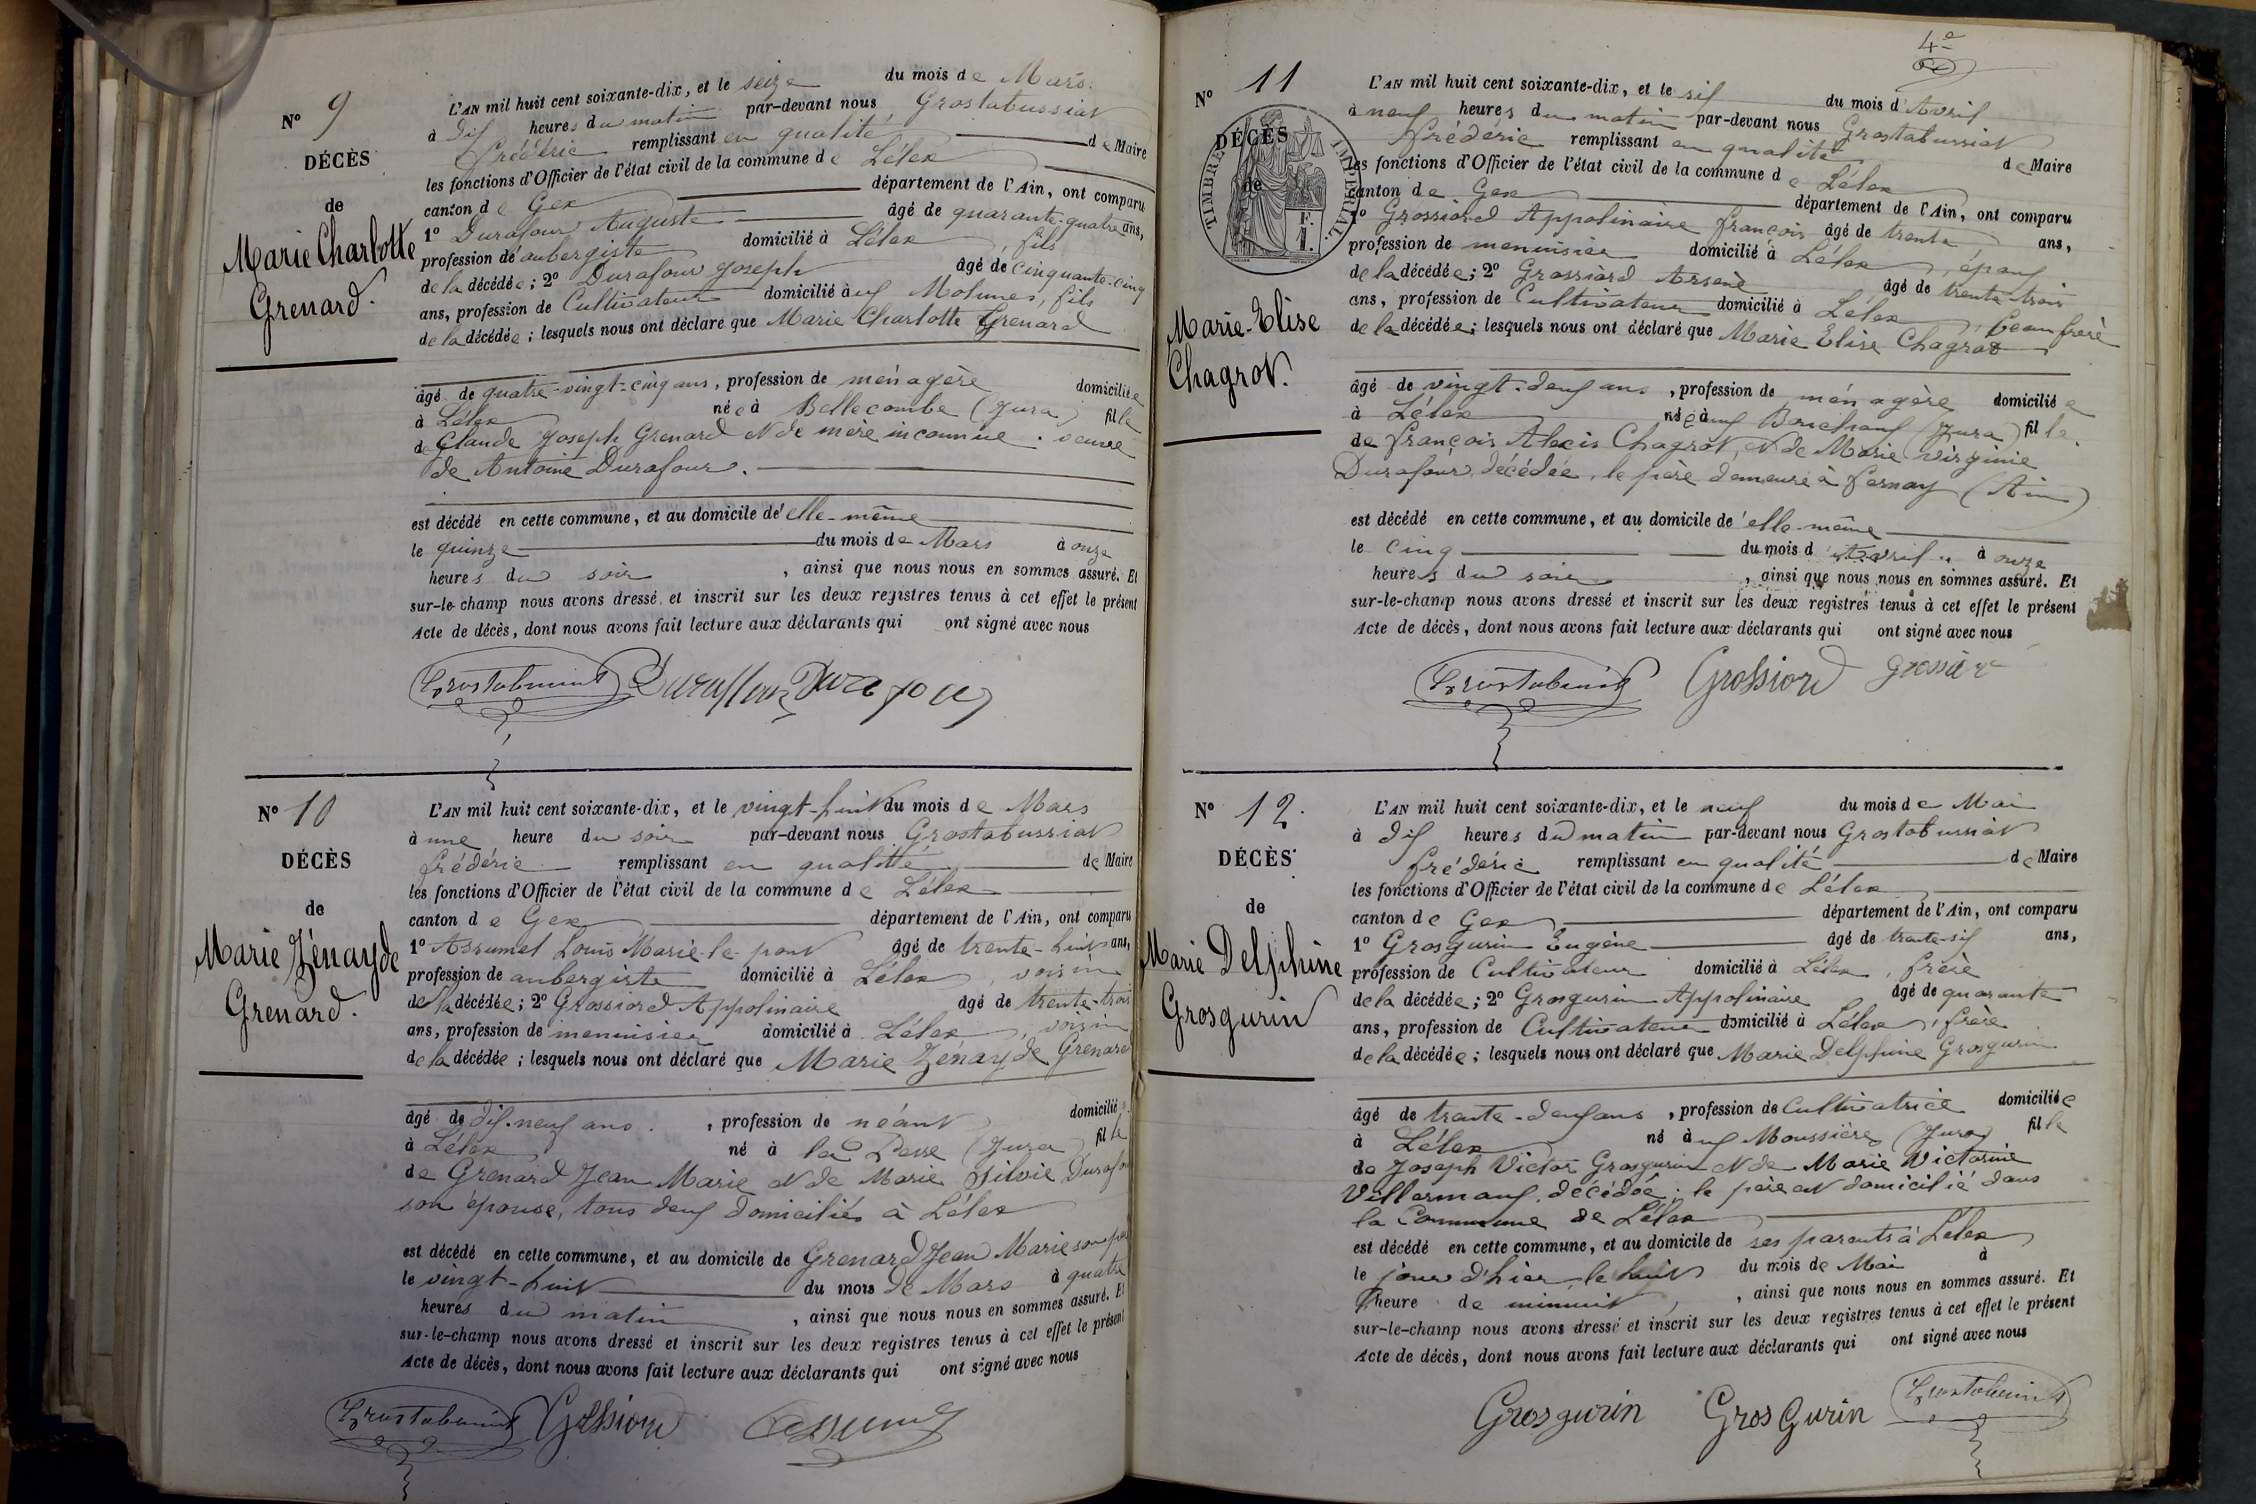 N° 9
DÉCÈS
de
Marie Charlotte
Grenard.
L'AN mil huit cent soixante-dix, et le seize du mois de Mars.
à dix heures du matin par-devant nous Grostabussiat
Frédéric remplissant en qualité de Maire
les fonctions d'Officier de l'état civil de la commune de Lélex
canton de Gex département de l'Ain, ont comparu
1° Durafour Auguste âgé de quarante-quatre ans,
profession de aubergiste domicilié à Lélex, fils
de la décédée; 2° Durafour Joseph âgé de cinquante-cinq
ans, profession de Cultivateur domicilié aux Molunes, fils
de la décédée; lesquels nous ont déclaré que Marie Charlotte Grenard
âgé de quatre-vingt-cinq ans, profession de ménagère domiciliée
à Lélex née à Bellecombe (Jura) fille
de Claude Joseph Grenard et de mère inconnue. veuve
de Antoine Durafour.
est décédé en cette commune, et au domicile de elle-même
le quinze du mois de Mars à onze
heures du soir, ainsi que nous nous en sommes assuré. Et
sur-le-champ nous avons dressé et inscrit sur les deux registres tenus à cet effet le présent
Acte de décès, dont nous avons fait lecture aux déclarants qui ont signé avec nous
Grostabussiat Duraffour Durafour
N° 10
DÉCÈS
de
Marie Zénayde
Grenard.
L'AN mil huit cent soixante-dix, et le vingt-huit du mois de Mars
à une heure du soir par-devant nous Grostabussiat
Frédéric remplissant en qualité de Maire
les fonctions d'Officier de l'état civil de la commune de Lélex
canton de Gex département de l'Ain, ont comparu
1° Assumel Louis Marie le pont âgé de trente-huit ans,
profession de aubergiste domicilié à Lélex, voisin
de la décédée; 2° Grossiord Appolinaire âgé de trente-trois
ans, profession de menuisier domicilié à Lélex, voisin
de la décédée; lesquels nous ont déclaré que Marie Zénayde Grenard
âgé de dix-neuf ans, profession de néant domicilié
à Lélex né à la Pesse (Jura) fille
de Grenard Jean Marie et de Marie Silvie Durafour
son épouse, tous deux domiciliés à Lélex
est décédé en cette commune, et au domicile de Grenard Jean Marie son père
le vingt-huit du mois de Mars à quatre
heures du matin, ainsi que nous nous en sommes assuré. Et
sur-le-champ nous avons dressé et inscrit sur les deux registres tenus à cet effet le présent
Acte de décès, dont nous avons fait lecture aux déclarants qui ont signé avec nous
Grostabussiat Grossiord Assumel
4e
N° 11
DÉCÈS
de
TIMBRE IMPÉRIAL.
F.
1.
Marie-Elise
Chagrot.
L'AN mil huit cent soixante-dix, et le six du mois d'Avril
à neuf heures du matin par-devant nous Grostabussiat
frédéric remplissant en qualité de Maire
les fonctions d'Officier de l'état civil de la commune de Lélex
canton de Gex département de l'Ain, ont comparu
1° Grossiord Appolinaire françois âgé de trente ans,
profession de menuisier domicilié à Lélex, époux
de la décédée; 2° Grossiord Arsène âgé de trente trois
ans, profession de Cultivateur domicilié à Lélex, beau frère
de la décédée; lesquels nous ont déclaré que Marie Elise Chagrot
âgé de vingt-deux ans, profession de ménagère domiciliée
à Lélex née aux Bouchoux (Jura) fille
de françois Alexis Chagrot, et de Marie virginie
Durafour, décédée, le père demeure à fernay (Ain)
est décédé en cette commune, et au domicile de elle-même
le cinq du mois d'Avril à onze
heures du soir, ainsi que nous nous en sommes assuré. Et
sur-le-champ nous avons dressé et inscrit sur les deux registres tenus à cet effet le présent
Acte de décès, dont nous avons fait lecture aux déclarants qui ont signé avec nous
Grostabussiat Grossiord
N° 12.
DÉCÈS
de
Marie Delphine
Grosgurin
L'AN mil huit cent soixante-dix, et le neuf du mois de Mai
à dix heures du matin par-devant nous Grostabussiat
frédéric remplissant en qualité de Maire
les fonctions d'Officier de l'état civil de la commune de Lélex
canton de Gex département de l'Ain, ont comparu
1° Grosgurin Eugène âgé de trente-six ans,
profession de Cultivateur domicilié à Lélex, frère
de la décédée; 2° Grosgurin Appolinaire âgé de quarante
ans, profession de Cultivateur domicilié à Lélex, frère
de la décédée; lesquels nous ont déclaré que Marie Delphine Grosgurin
âgé de trente-deux ans, profession de Cultivatrice domiciliée
à Lélex né aux Moussières (Jura) fille
de Joseph Victor Grosgurin et de Marie Victorine
Villermaux, décédée. le père est domicilié dans
la Commune de Lélex
est décédé en cette commune, et au domicile de ses parents à Lélex
le jour d'hier, le huit du mois de Mai à
l'heure de minuit, ainsi que nous nous en sommes assuré. Et
sur-le-champ nous avons dressé et inscrit sur les deux registres tenus à cet effet le présent
Acte de décès, dont nous avons fait lecture aux déclarants qui ont signé avec nous
Grosgurin GrosGurin Grostabussiat